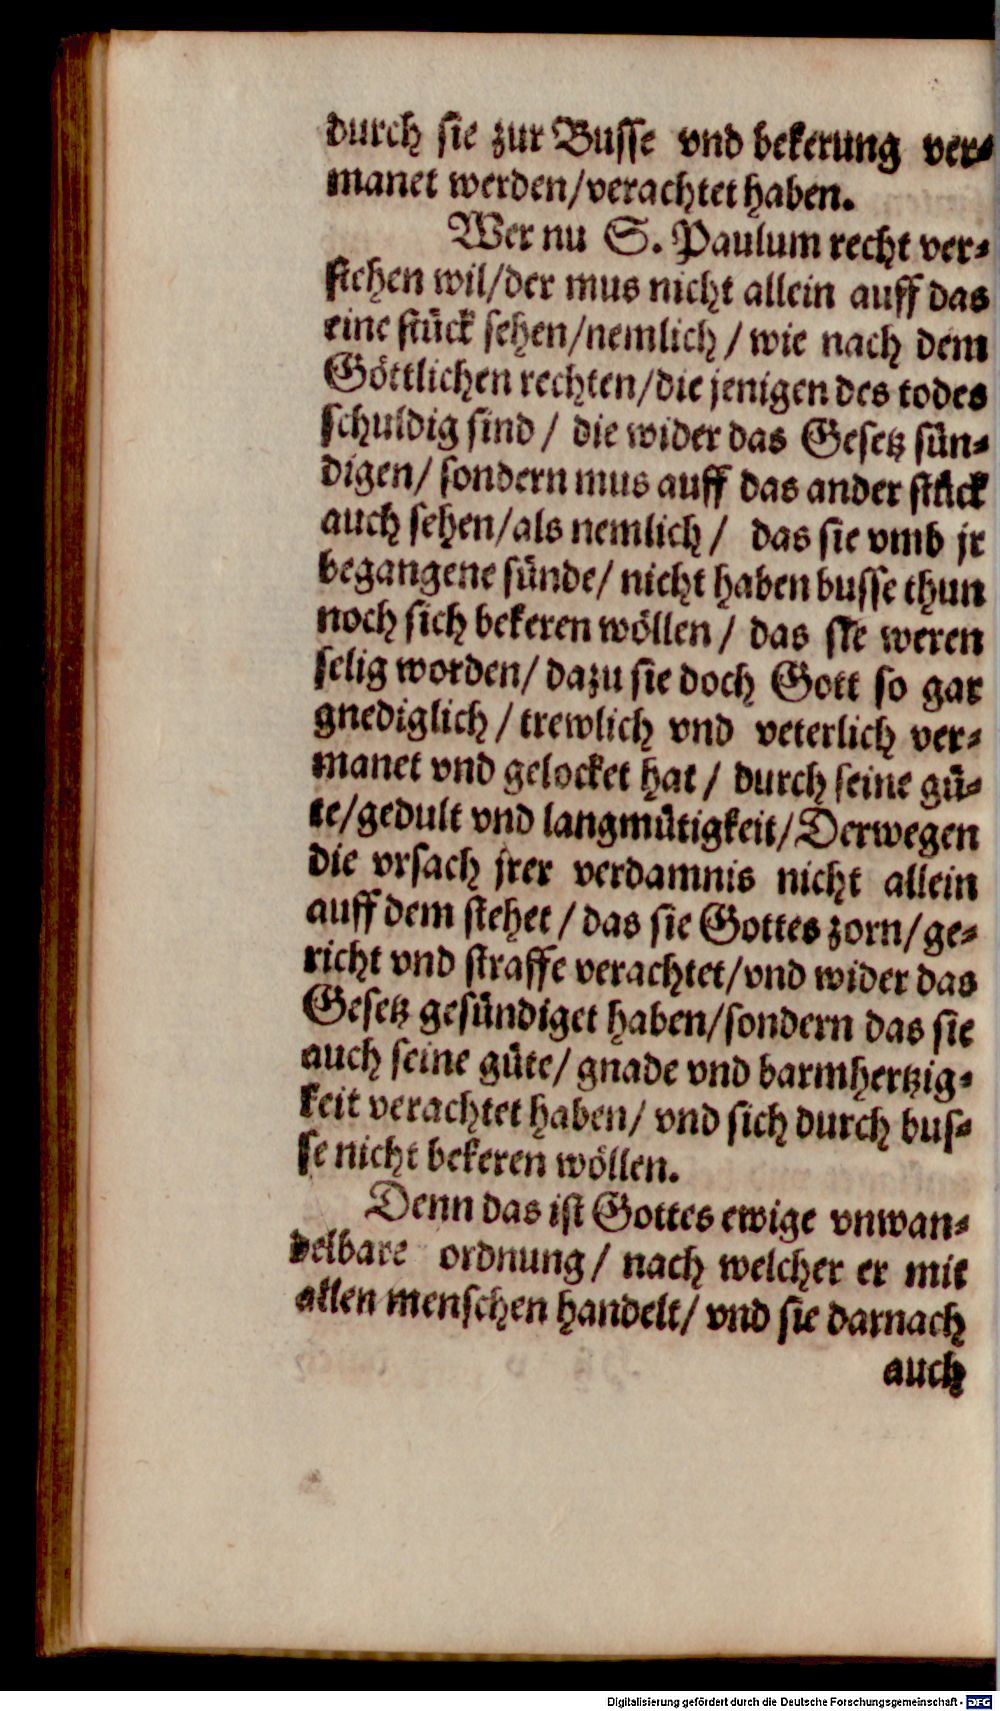 durch sie zur Busse vnd bekerung ver-
manet werden/verachtet haben.
Wer nu S. Paulum recht ver-
stehen wil/der mus nicht allein auff das
eine stück sehen/nemlich/ wie nach dem
Göttlichen rechten/die jenigen des todes
schuldig sind/ die wider das Gesetz sün-
digen/ sondern mus auff das ander stück
auch sehen/als nemlich/ das sie vmb jr
begangene sünde/ nicht haben busse thun
noch sich bekeren wöllen/ das sie weren
selig worden/ dazu sie doch Gott so gar
gnediglich/ trewlich vnd veterlich ver-
manet vnd gelocket hat/ durch seine gü-
te/gedult vnd langmütigkeit/Derwegen
die vrsach jrer verdamnis nicht allein
auff dem stehet/ das sie Gottes zorn/ge-
richt vnd straffe verachtet/vnd wider das
Gesetz gesündiget haben/sondern das sie
auch seine güte/ gnade vnd barmhertzig-
keit verachtet haben/ vnd sich durch bus-
se nicht bekeren wöllen.
Denn das ist Gottes ewige vnwan-
delbare ordnung/ nach welcher er mit
allen menschen handelt/ vnd sie darnach
auch
Digitalisierung gefördert durch die Deutsche Forschungsgemeinschaft - DFG